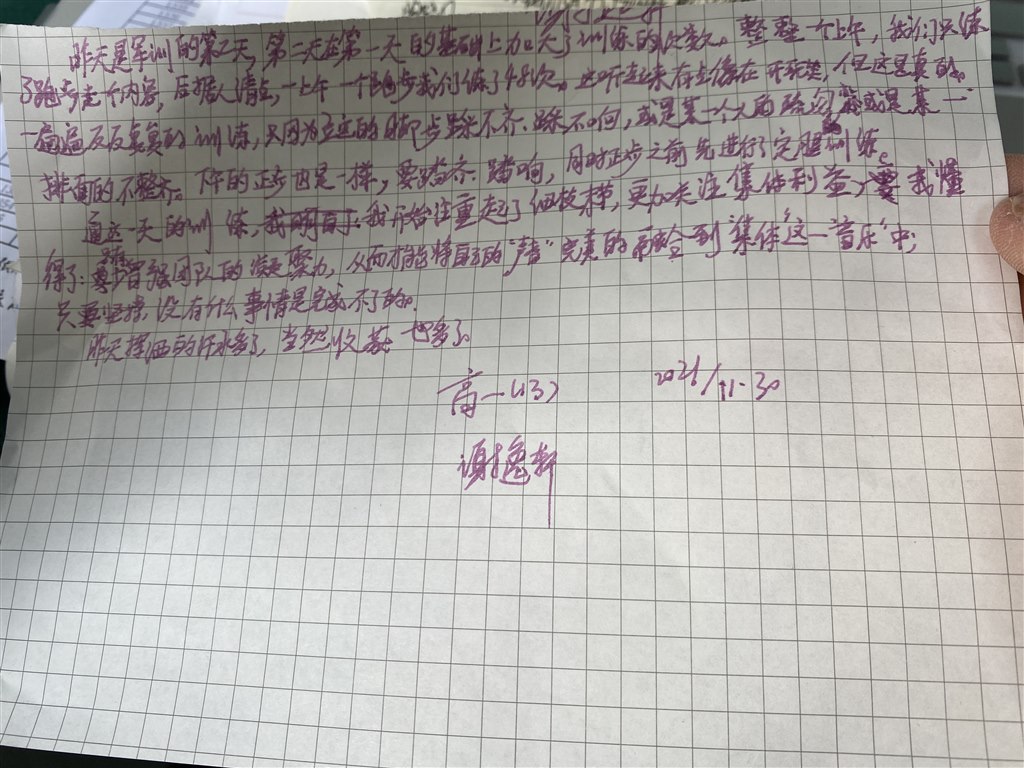 昨天是军训的第二天,第二天在第一天的基础上加大了训练的次数。整整一个上午,我们只练
了跑步走一个内容,后据人清点,一上午一个跑步我们练了48次。这听起来存在像在开玩笑,但这是真的。
一遍遍反反复复的训练,只因为立定的脚步踩不齐、踩不响,或是某一个人的晃动或是某一
排面的不整齐。下午的正步也是一样,要踏齐、踏响,同时正步之前先进行了定腿训练。
通过一天的训练,我开始注重起了细枝末,更加关注集体利益,我懂
得了:增强团队的凝聚力,从而才能将自己的“声音”完美的融合到“集体这一音乐”中;
只要坚持,没有什么事情是完成不了的。
昨天挥洒的汗水多了,当然收获也多了。
高一(3) 2021/11.30
逸轩